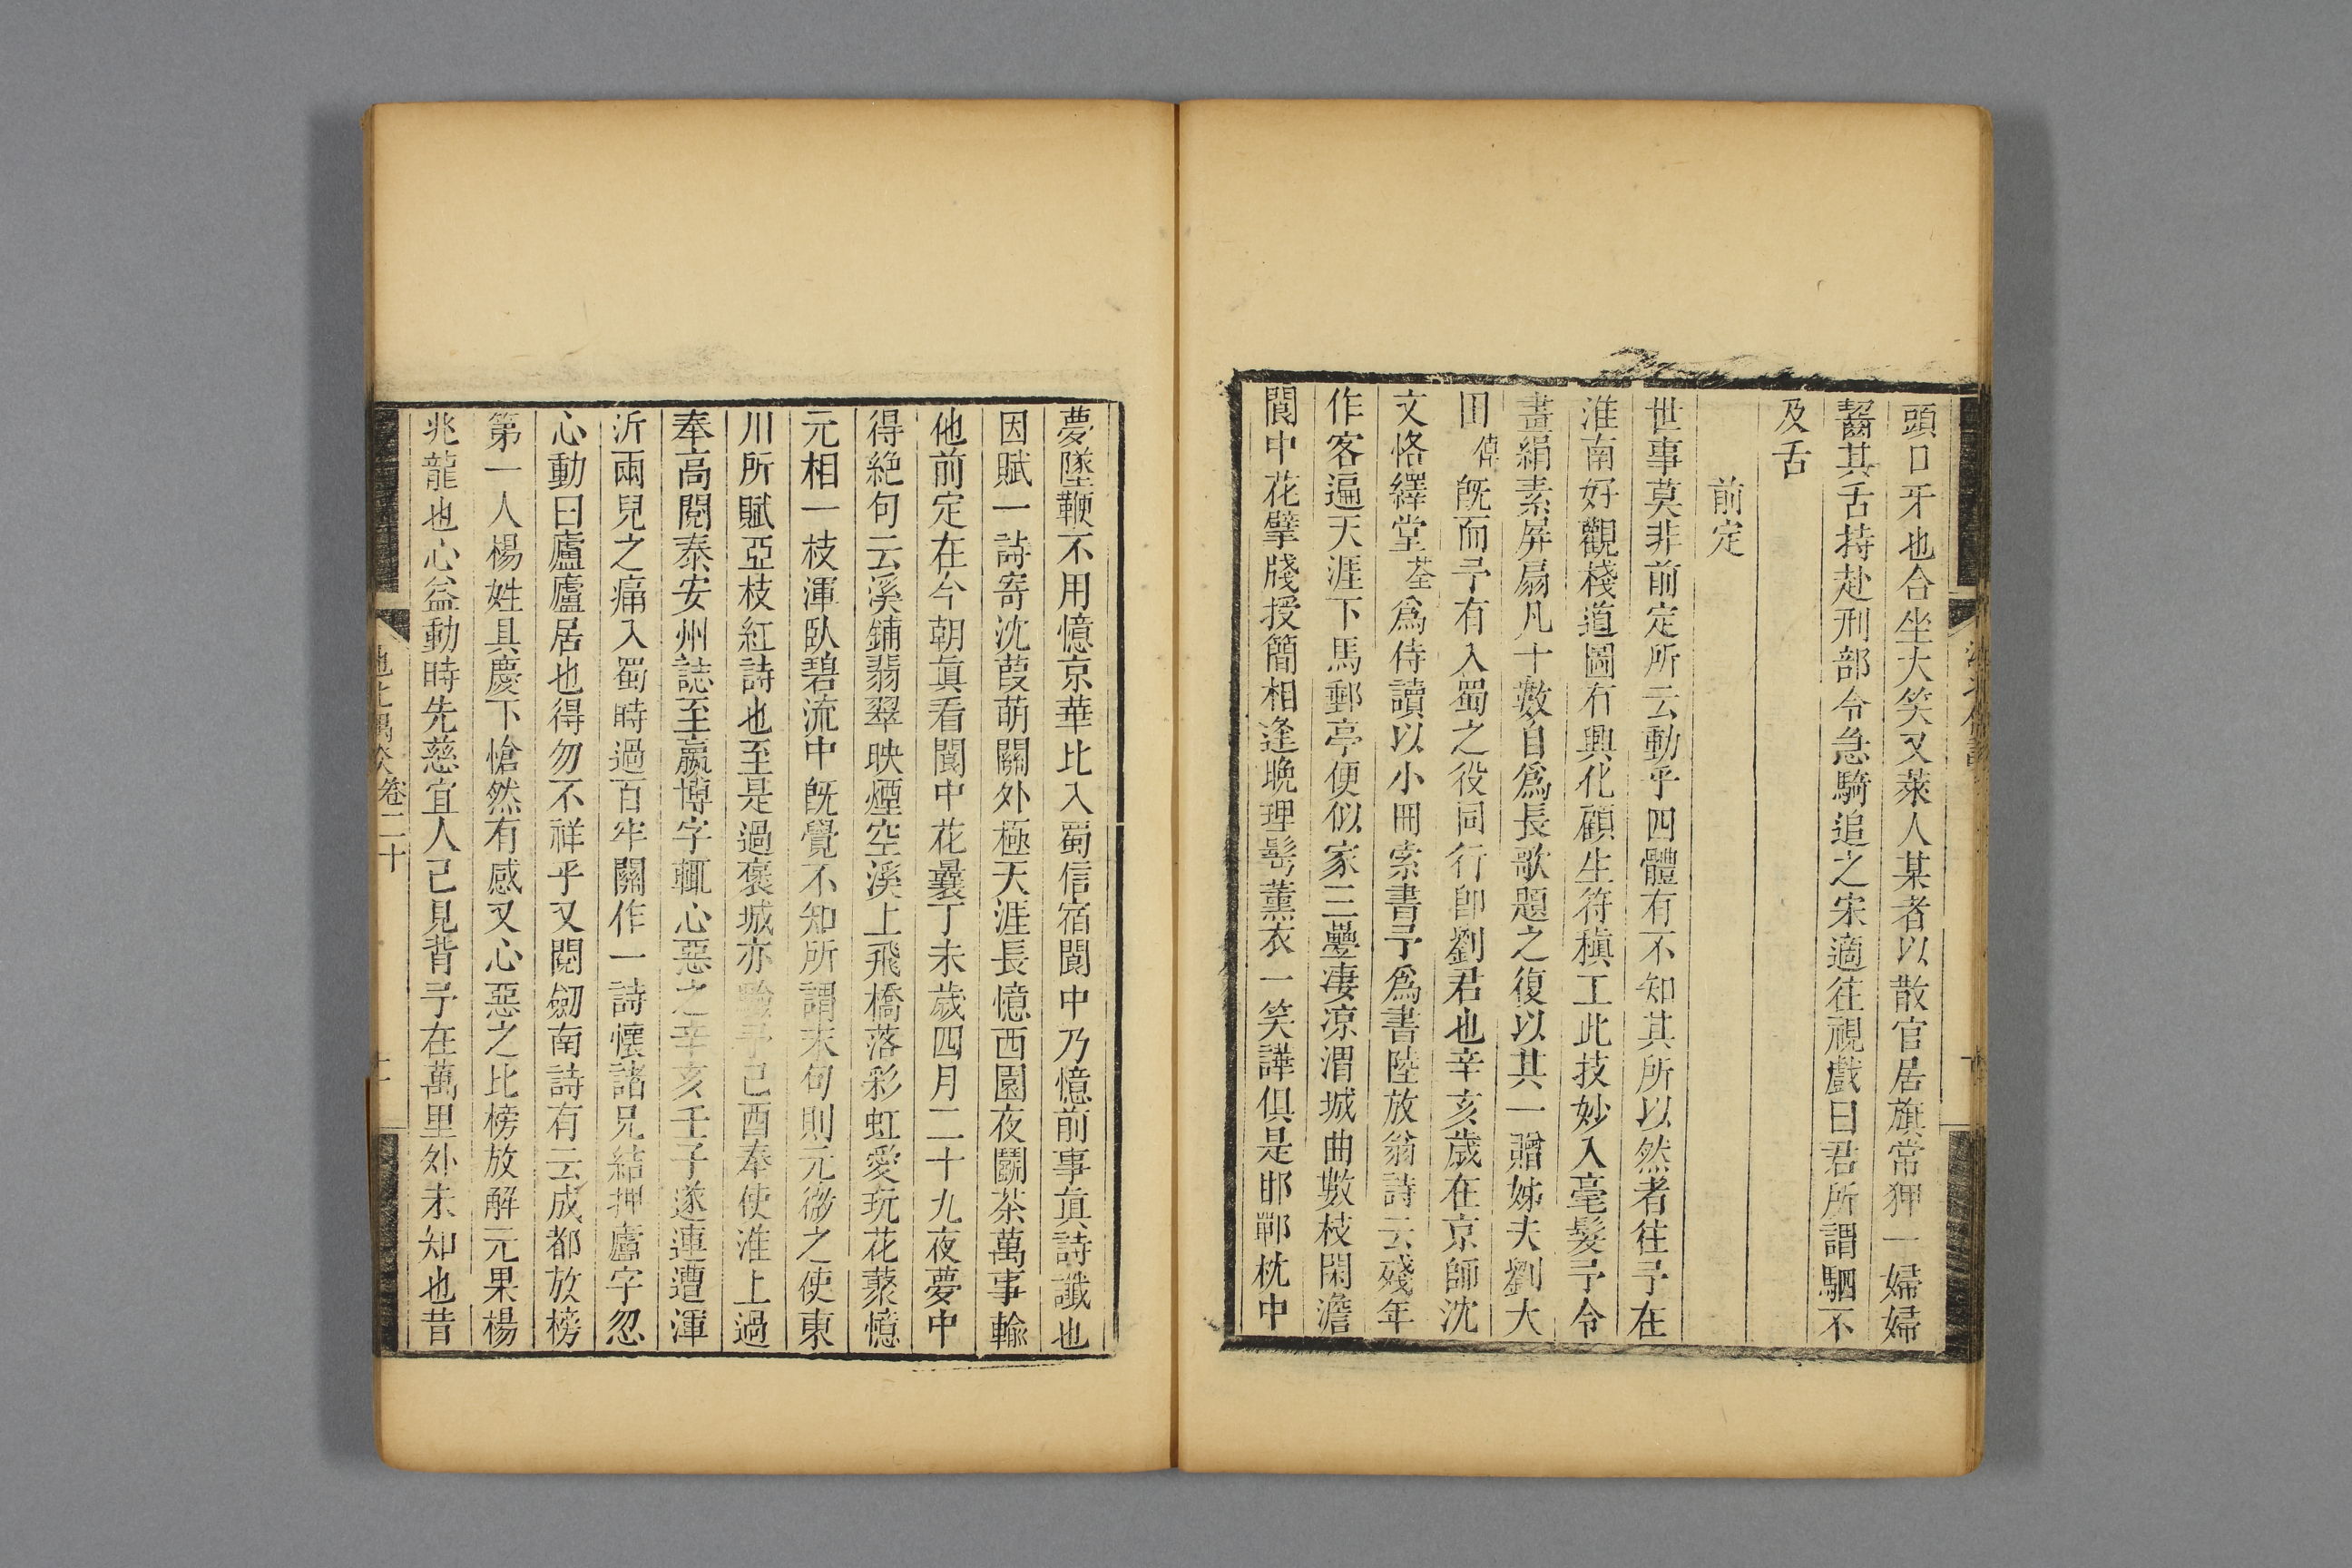 頭口牙也合坐大笑又萊人某者以散官居旗常狎一婦婦
齧其舌持赴刑部令急騎追之宋適往視戲曰君所謂駟不
及舌
前定
世事莫非前定所云動乎四體有不知其所以然者往予在
淮南好觀棧道圖有興化顧生符稹工此技妙入毫髮予令
畫絹素屏扇凡十數自爲長歌題之復以其一贈姊夫劉大
田偉旣而予有入蜀之役同行卽劉君也辛亥歲在京師沈
文恪繹堂荃爲侍讀以小冊索書予爲書陸放翁詩云殘年
作客遍天涯下馬郵亭便似家三疊凄凉渭城曲數枝閑澹
閬中花擘牋授簡相逢晚理髩薰衣一笑譁俱是邯鄲枕中
夢墜鞭不用憶京華比入蜀信宿閬中乃憶前事眞詩讖也
因賦一詩寄沈葭萌關外極天涯長憶西園夜鬬茶萬事輸
他前定在今朝眞看閬中花曩丁未歲四月二十九夜夢中
得絶句云溪鋪翡翠映煙空溪上飛橋落彩虹愛玩花蘂憶
元相一枝渾臥碧流中旣覺不知所謂末句則元微之使東
川所賦亞枝紅詩也至是過褒城亦驗予己酉奉使淮上過
奉高閱泰安州誌至嬴博字輒心惡之辛亥壬子遂連遭渾
沂兩兒之痛入蜀時過百牢關作一詩懷諸兄結押廬字忽
心動曰廬廬居也得勿不祥乎又閱劒南詩有云成都放榜
第一人楊姓具慶下愴然有感又心惡之比榜放解元果楊
兆龍也心益動時先慈宜人已見背予在萬里外未知也昔
卷二十